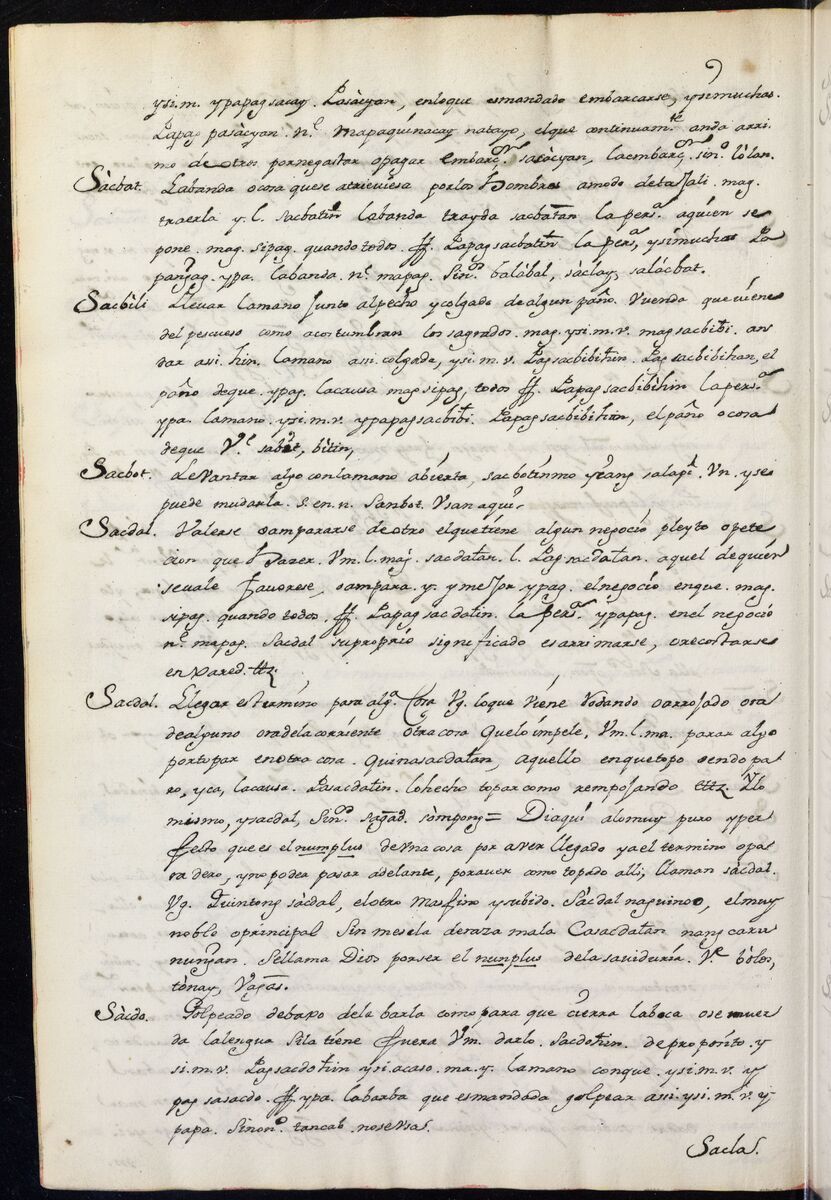 ysi.m. ypapagsacay. Pasàcyan, enloque esmandado embarcarse, ysimuchas.
Papag pasàcyan. n.l mapaquinacay natayo, el que continuam.te anda arri-
mo de otros por negastar o pagar embarç.on sasàcyan, la embarç.on sin.o lòlan.
Sàcbat. La banda o cosa que se atraviesa por los hombros a modo de tahali. mag.
traerla y. l. sacbatin. la banda trayda sacbatan la pers.a aquien se
pone. mag. sipag. quando todos. ff. Papagsacbatin la pers.a, ysi muchas Pa
pangag. ypa. la banda. n.l mapag. Sin.o balàbal, sàclay, salàcbat.
Sacbìli Llevar la mano junto al pecho y colgada de algun paño. Vuenda que viene
del pescueso como acostumbran los sagrados. mag. ysi. m. v. magsacbibi. an
dar asi. hin. la mano asi colgada, ysi. m. v. Pagsacbibihin. Pagsacbibihan, el
paño deque. ypag. la caussa mag sipag, todos ff. Papagsacbibihin la pers.a
ypa. la mano. ysi. m. v. ypapagsacbibi. Papagsacbibihan, el paño o cosa
de que V.e sabit, bitin,
Sacbot. Levantar algo con la mano abierta, sacbotinmo yèang salapi. Vn. y se
puede mudarla. s. en. n. Sanbot. Vsan aqui.
Sacdal. Valerse o ampararse de otro el que tiene algun negocio pleyto o pete
cion que hazer. Vm. l. mag. sacdatan. l. Pagsacdatan. aquel de quien
se vale favorese, o ampara. y. y mejor ypag. el negocio en que. mag.
sipag. quando todos. ff. Papagsacdatin. la pers.a ypapag. en el negocio
n.l mapag. Sacdal su proprio significado es arrimarse, o recostarse
en pared. ettz.
Sacdal. Llegar es termino para alg.a cosa Vg. lo que viene rodando o arrojado ora
de alguno ora de la corriente otra cosa que lo impele, Vm. l. ma. parar algo
por topar en otra cosa. quinasacdatan, aquello en que topo siendo pa
ro, yca, la causa. Pasacdatin. lo hecho topar como rempujando ettz. Y lo
mismo, ysacdal, Sin.o sagad. sòmpong = Diaqui a lo muy puro y per
fecto que es el numplus de vna cosa por aver llegado ya el termino o pa
ra dero, y no podea pasar adelante, por aver como topado alli, llaman sàcdal.
Vg. Quintong sàcdal, el otro mas fino y subido. Sàcdal na guinoo, el muy
noble o principal sin mescla de raza mala Casacdatan nang caru
nungan. Se llama Dios por ser el nunplus de la saviduria. V.e bòlos,
tònay, Vagas.
Sàcdo. Golpeado debaxo de la barba como para que cierra la boca o se muer
da la lengua si la tiene fuera Vm. darlo. Sacdohin. de proposito. y
si. m. v. Pagsacdohin ysi acaso. ma. y. la mano con que. ysi. m. v. y
pag sasacdo. ff ypa. la barba que es mandada golpear assi. ysi. m. v. y-
papa. Sinon.o tancab no se vsa.
Sacla.